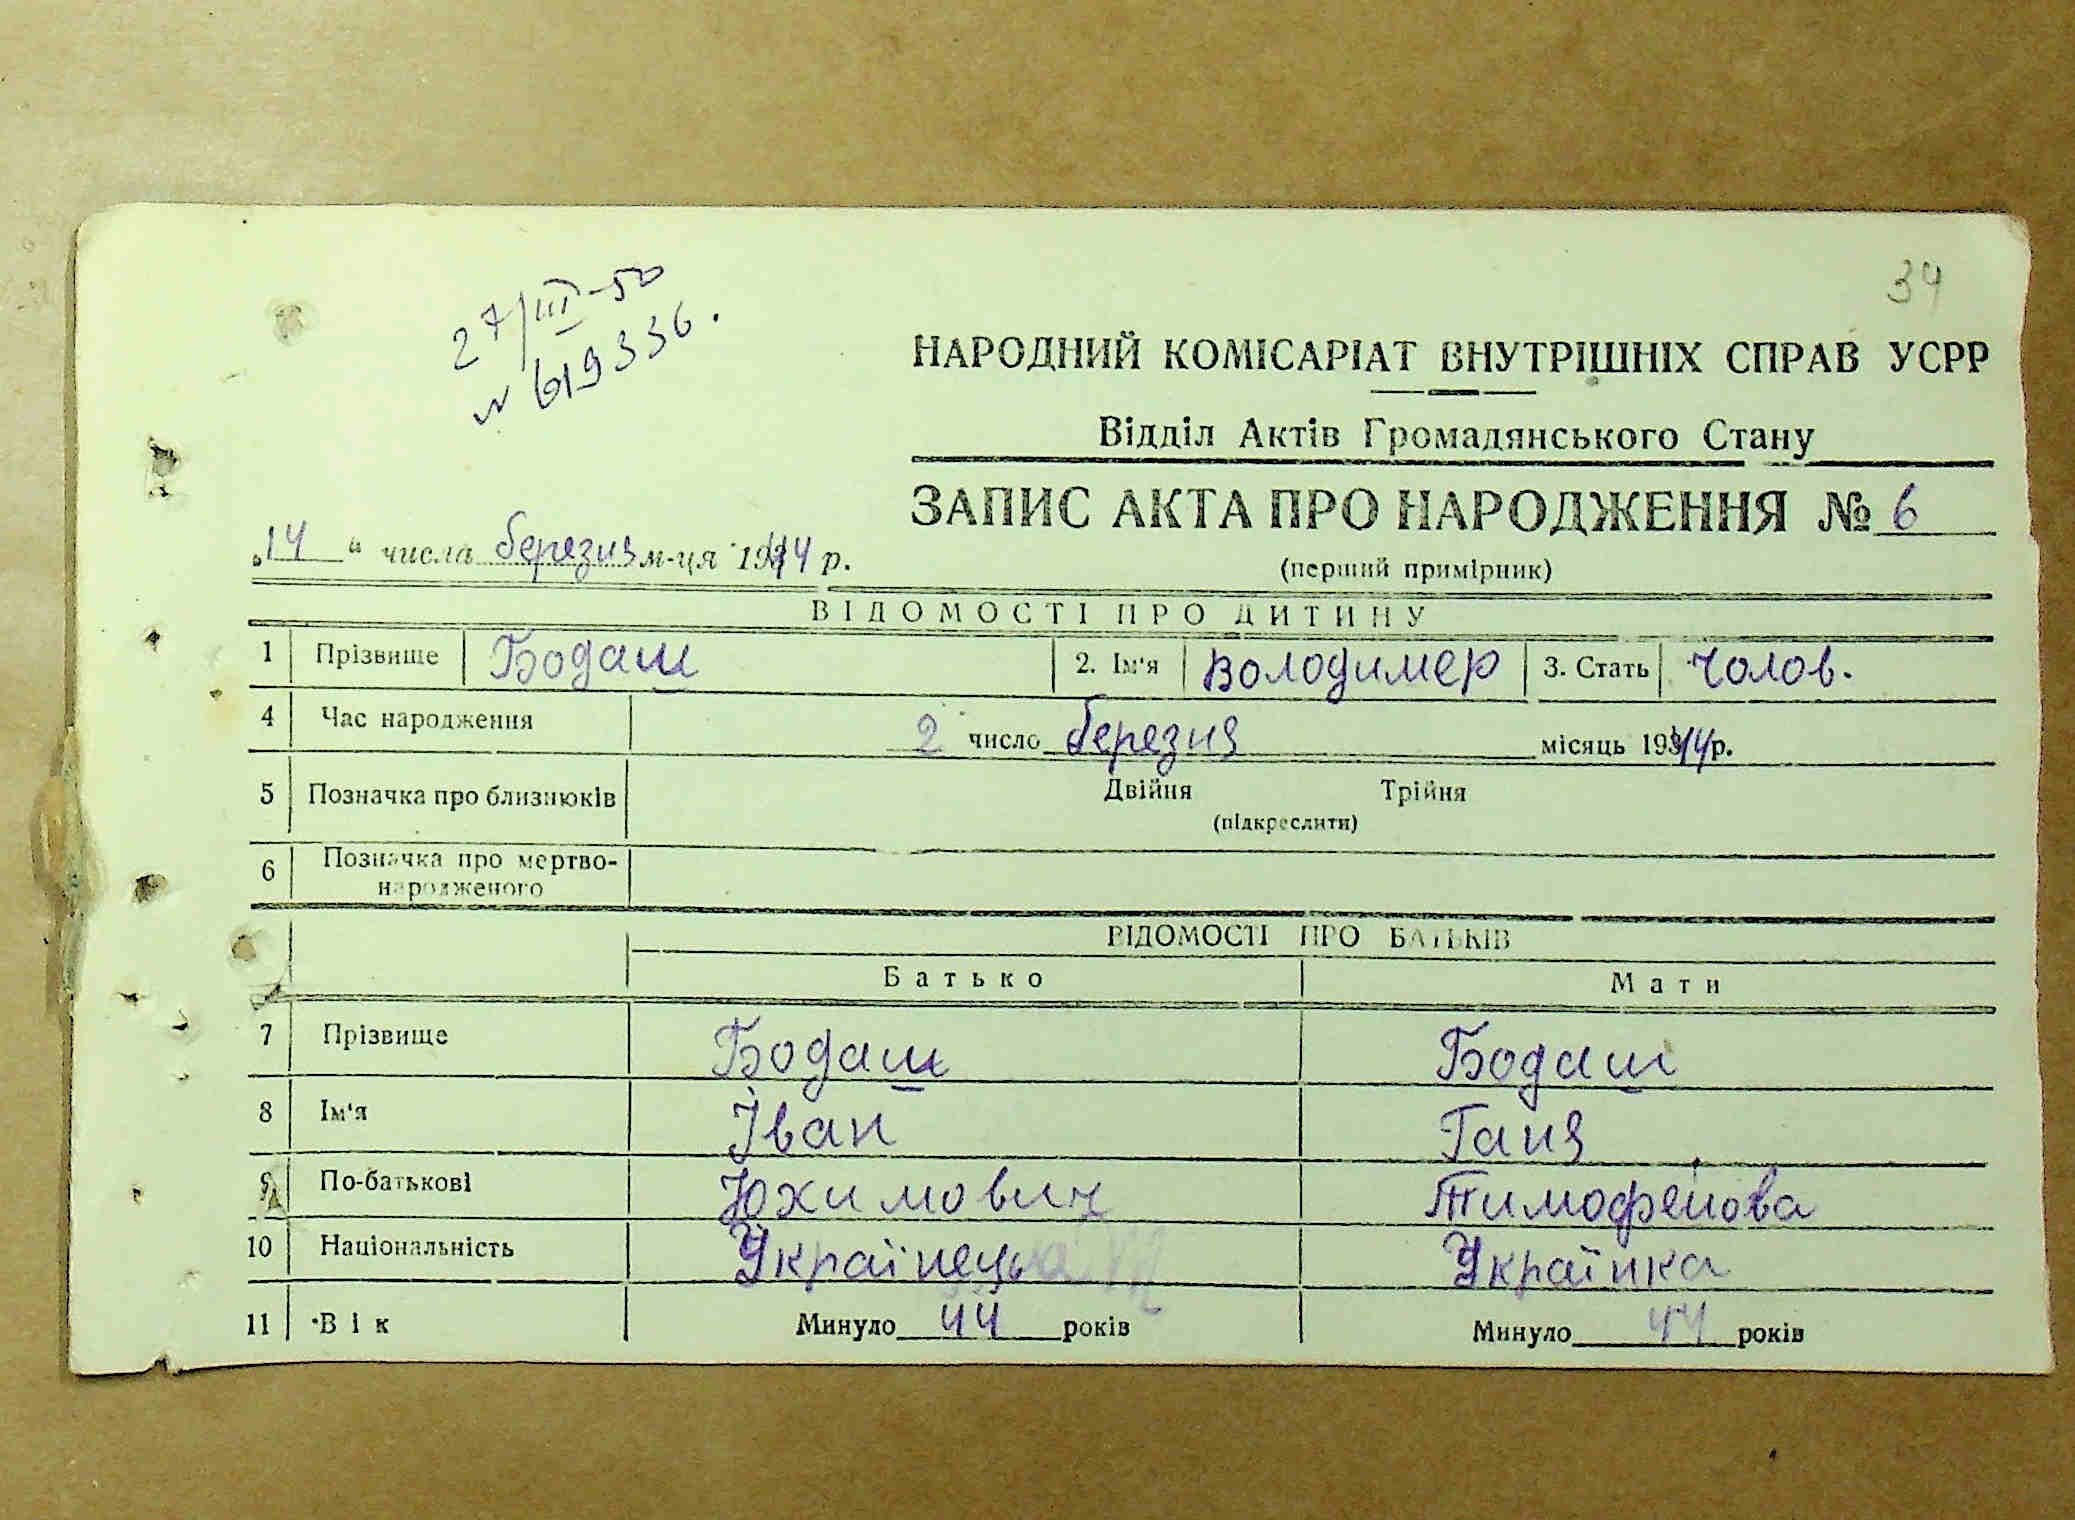 34
27/III-50
№ 619336.
НАРОДНИЙ КОМІСАРІАТ ВНУТРІШНІХ СПРАВ УСРР
Відділ Актів Громадянського Стану
ЗАПИС АКТА ПРО НАРОДЖЕННЯ № 6
(перший примірник)
„14“ числа березня м-ця 1944 р.
ВІДОМОСТІ ПРО ДИТИНУ
1 Прізвище Бодаш 2. Ім'я Володимер 3. Стать чолов.
4 Час народження 2 число березня місяць 1944 р.
5 Позначка про близнюків Двійня Трійня
(підкреслити)
6 Позначка про мертво-
народженого
ВІДОМОСТІ ПРО БАТЬКІВ
Батько Мати
7 Прізвище Бодаш Бодаш
8 Ім'я Іван Ганя
9 По-батькові Юхимович Тимофейова
10 Національність Українець Українка
11 Вік Минуло 44 років Минуло 44 років